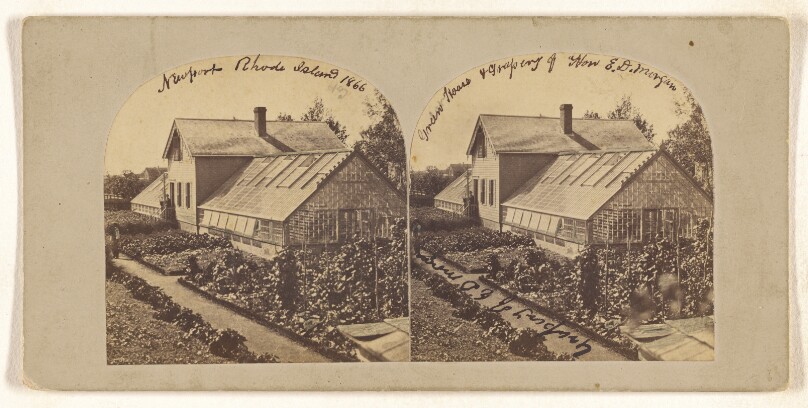 Newport Rhode Island 1866
Green House & Grapery of Hon E. D. Morgan
Grapery of E D